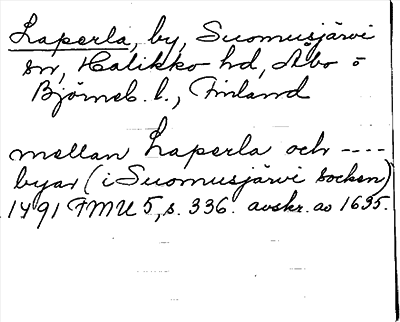 Laperla, by, Suomusjärvi
sn, Halikko hd, Åbo o
Björneb. l., Finland
mellan Laperla och ----
byar (i Suomusjärvi socken)
1491 FMU 5, s. 336. avskr. av 1635.